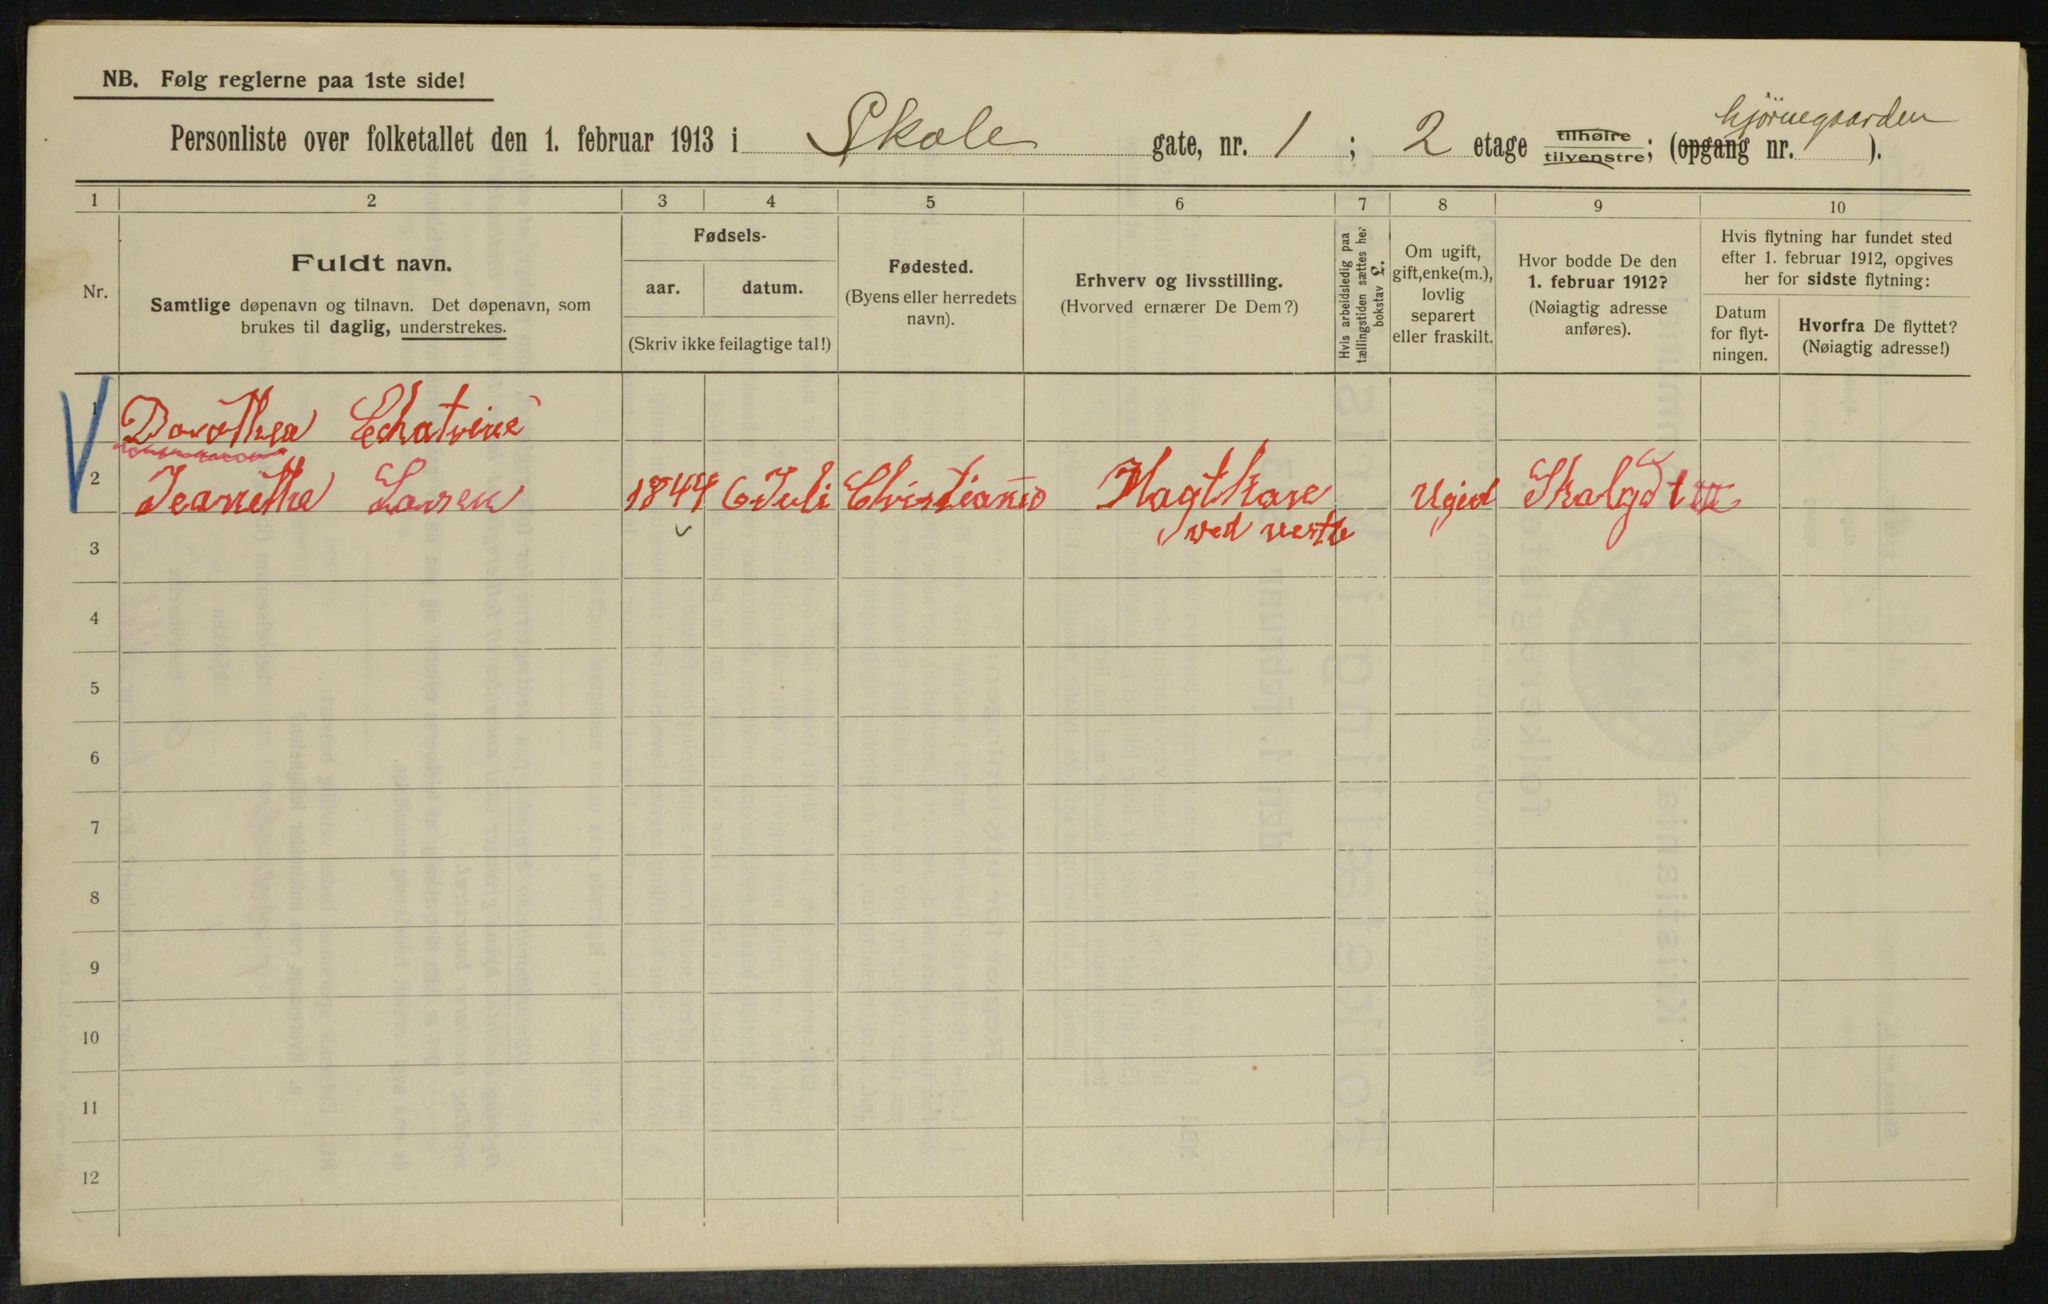 NB. Følg reglerne paa 1ste side!
Personliste over folketallet den 1. februar 1913 i Skole gate, nr. 1 ; 2 etage tilhøire tilvenstre; (opgang nr. ).
hjørnegaarden
1 2 3 4 5 6 7 8 9 10
Nr.
Fuldt navn.
Samtlige døpenavn og tilnavn. Det døpenavn, som
brukes til daglig, understrekes.
Fødsels-
aar. datum.
(Skriv ikke feilagtige tal!)
Fødested.
(Byens eller herredets
navn).
Erhverv og livsstilling.
(Hvorved ernærer De Dem?)
Hvis arbeidsledig paa
tællingstiden sættes her
bokstav L.
Om ugift,
gift, enke(m.),
lovlig
separert
eller fraskilt.
Hvor bodde De den
1. februar 1912?
(Nøiagtig adresse
anføres).
Hvis flytning har fundet sted
efter 1. februar 1912, opgives
her for sidste flytning:
Datum
for flyt-
ningen.
Hvorfra De flyttet?
(Nøiagtig adresse!)
1 Dorothea Chatrine
2 Jeanethe Larsen 1844 6 Juli Christiania Ugivd Skolgd 1
ved
3
4
5
6
7
8
9
10
11
12